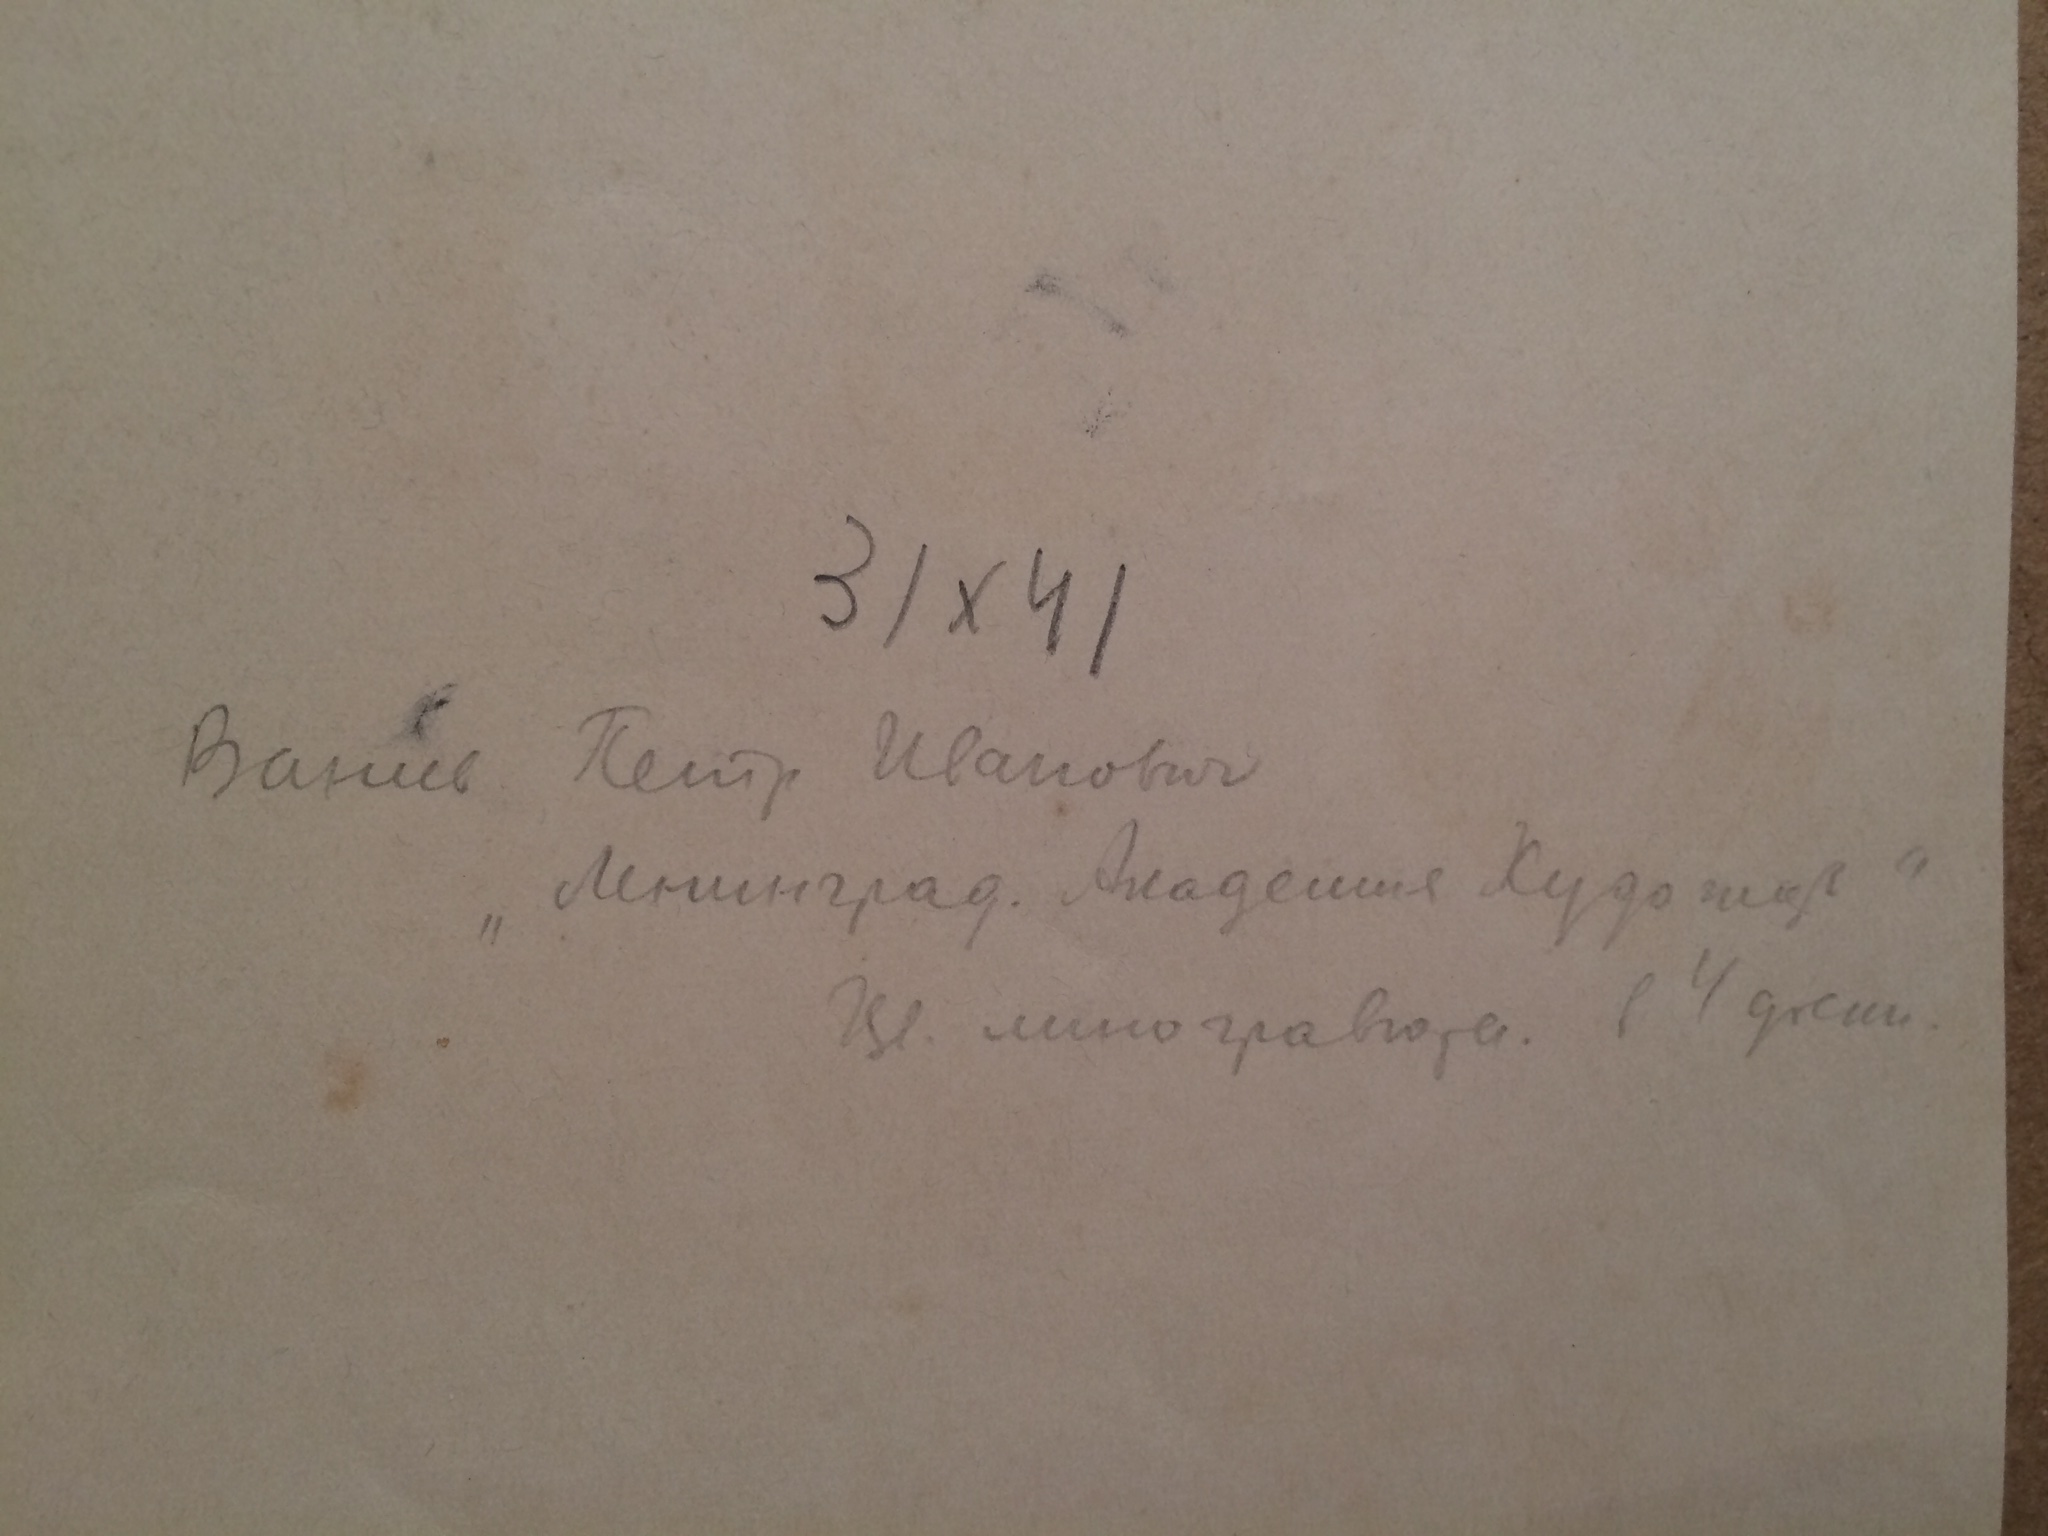 31 х 41
Ванин Петр Иванович
„Ленинград. Академия Художеств"
Цв. линогравюра. в 4 доски.